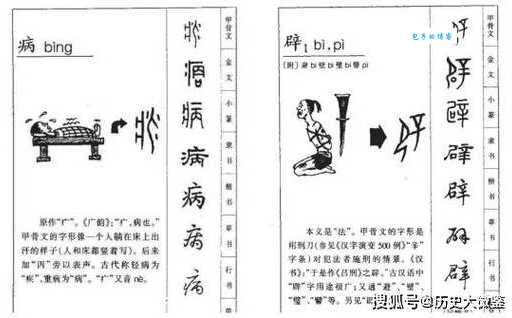 病 bìng
原作"疒"。《广韵》:"疒,病也。"
甲骨文的字形像一个人躺在床上出
汗的样子(人和床都竖着写)。后来
加"丙"旁以表声。古代称轻病为
"疾",重病为"病"。"疒"又音 nè。
病
病
病
甲骨文
金文
小篆
隶书
楷书
草书
行书
辟1 bì, pì
〔附〕避 bì 壁 bì 璧 bì 譬 pì
本义是"法"。甲骨文的字形是
用刑刀(参见《汉字演变 500 例》"辛"
字条)对犯法者施刑的情景。《汉
书》:"于是作《吕刑》之辟。"古汉语中
"辟"字用途极广;又通"避"、"壁"、
"璧"、"譬"等。另见
辟
辟
辟
甲骨文
金文
小篆
隶书
楷书
草书
行书
搜狐号@历史大微鉴